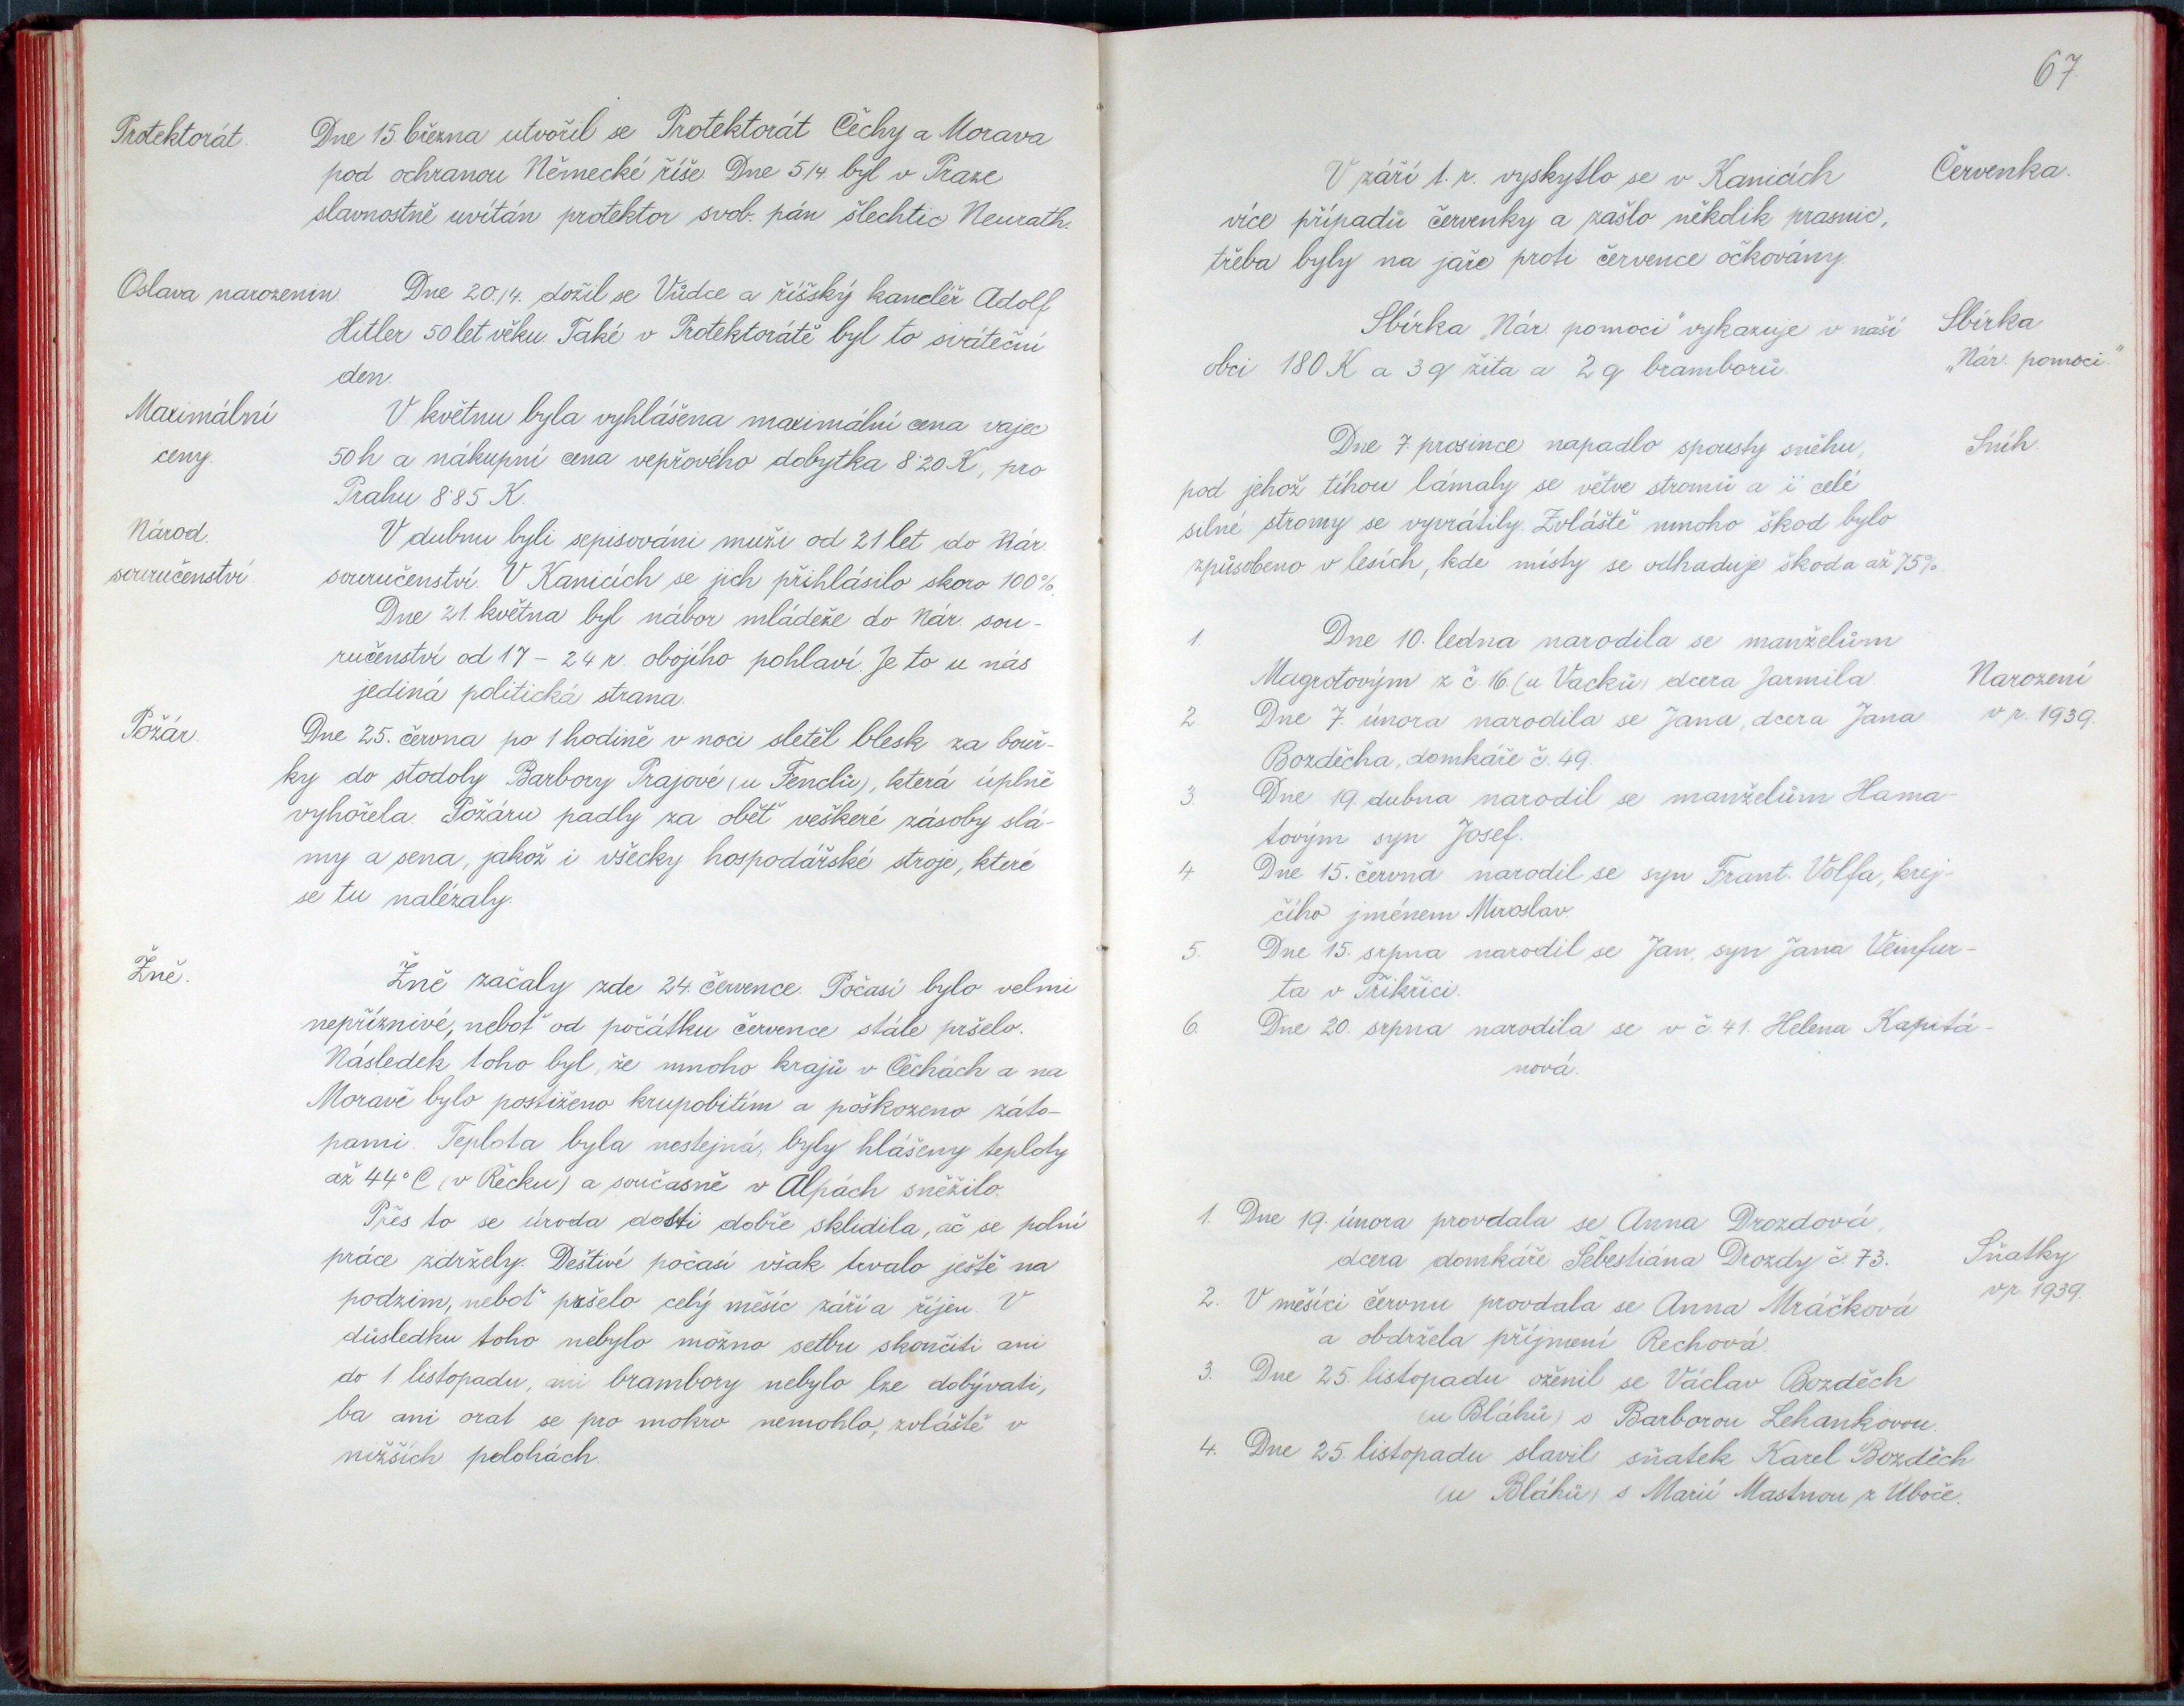 Protektorát.
Dne 15 března utvořil se Protektorát Čechy a Morava
pod ochranou Německé říše. Dne 5./4. byl v Praze
slavnostně uvítán protektor svob. pán šlechtic Neurath.
Oslava narozenin.
Dne 20./4. dožil se Vůdce a říšský kancléř Adolf
Hitler 50 let věku. Také v Protektorátě byl to sváteční
den.
Maximální
ceny.
V květnu byla vyhlášena maximální cena vajec
50 h a nákupní cena vepřového dobytka 8·20 K, pro
Prahu 8·85 K.
Národ.
souručenství.
V dubnu byli sepisováni muži od 21 let do Nár.
souručenství. V Kanicích se jich přihlásilo skoro 100%.
Dne 21. května byl nábor mládeže do Nár. sou-
ručenství od 17 - 24 r. obojího pohlaví. Je to u nás
jediná politická strana.
Požár.
Dne 25. června po 1 hodině v noci sletěl blesk za bouř-
ky do stodoly Barbory Prajové (u Fenclů), která úplně
vyhořela. Požáru padly za oběť veškeré zásoby slá-
my a sena, jakož i všecky hospodářské stroje, které
se tu nalézaly.
Žně.
Žně začaly zde 24. července. Počasí bylo velmi
nepříznivé, neboť od počátku července stále pršelo.
Následek toho byl, že mnoho krajů v Čechách a na
Moravě bylo postiženo krupobitím a poškozeno záto-
pami. Teplota byla nestejná, byly hlášeny teploty
až 44° C (v Řecku) a současně v Alpách sněžilo.
Přes to se úroda dosti dobře sklidila, ač se polní
práce zdržely. Deštivé počasí však trvalo ještě na
podzim, neboť pršelo celý měsíc září a říjen. V
důsledku toho nebylo možno setbu skončiti ani
do 1. listopadu, ani brambory nebylo lze dobývati,
ba ani orat se pro mokro nemohlo, zvláště v
nižších polohách.
67
V září t. r. vyskytlo se v Kanicích
Červenka.
více případů červenky a zašlo někdlik prasnic,
třeba byly na jaře proti července očkovány.
Sbírka „Nár. pomoci" vykazuje v naší
obci 180 K a 3 q žita a 2 q bramborů.
Sbírka
„Nár. pomoci."
Dne 7. prosince napadlo spousty sněhu,
Sníh.
pod jehož tíhou lámaly se větve stromů a i celé
silné stromy se vyvrátily. Zvláště mnoho škod bylo
způsobeno v lesích, kde místy se odhaduje škoda až 75%.
1. Dne 10. ledna narodila se manželům
Magrotovým z č. 16. (u Vacků) dcera Jarmila.
Narození
v r. 1939.
2. Dne 7. února narodila se Jana, dcera Jana
Bozděcha, domkáře č. 49.
3. Dne 19. dubna narodil se manželům Hama-
tovým syn Josef.
4. Dne 15. června narodil se syn Frant. Volfa, krej-
čího jménem Miroslav.
5. Dne 15. srpna narodil se Jan, syn Jana Veinfur-
ta v Třikřici.
6. Dne 20. srpna narodila se v č. 41. Helena Kapitá-
nová.
1. Dne 19. února provdala se Anna Drozdová,
dcera domkáře Šebestiána Drozdy č. 73.
Sňatky
v r. 1939.
2. V měsíci červnu provdala se Anna Mráčková
a obdržela příjmení Rechová.
3. Dne 25. listopadu oženil se Václav Bozděch
(u Bláhů) s Barborou Lehankovou.
4. Dne 25. listopadu slavil sňatek Karel Bozděch
(u Bláhů) s Marií Mastnou z Úboče.